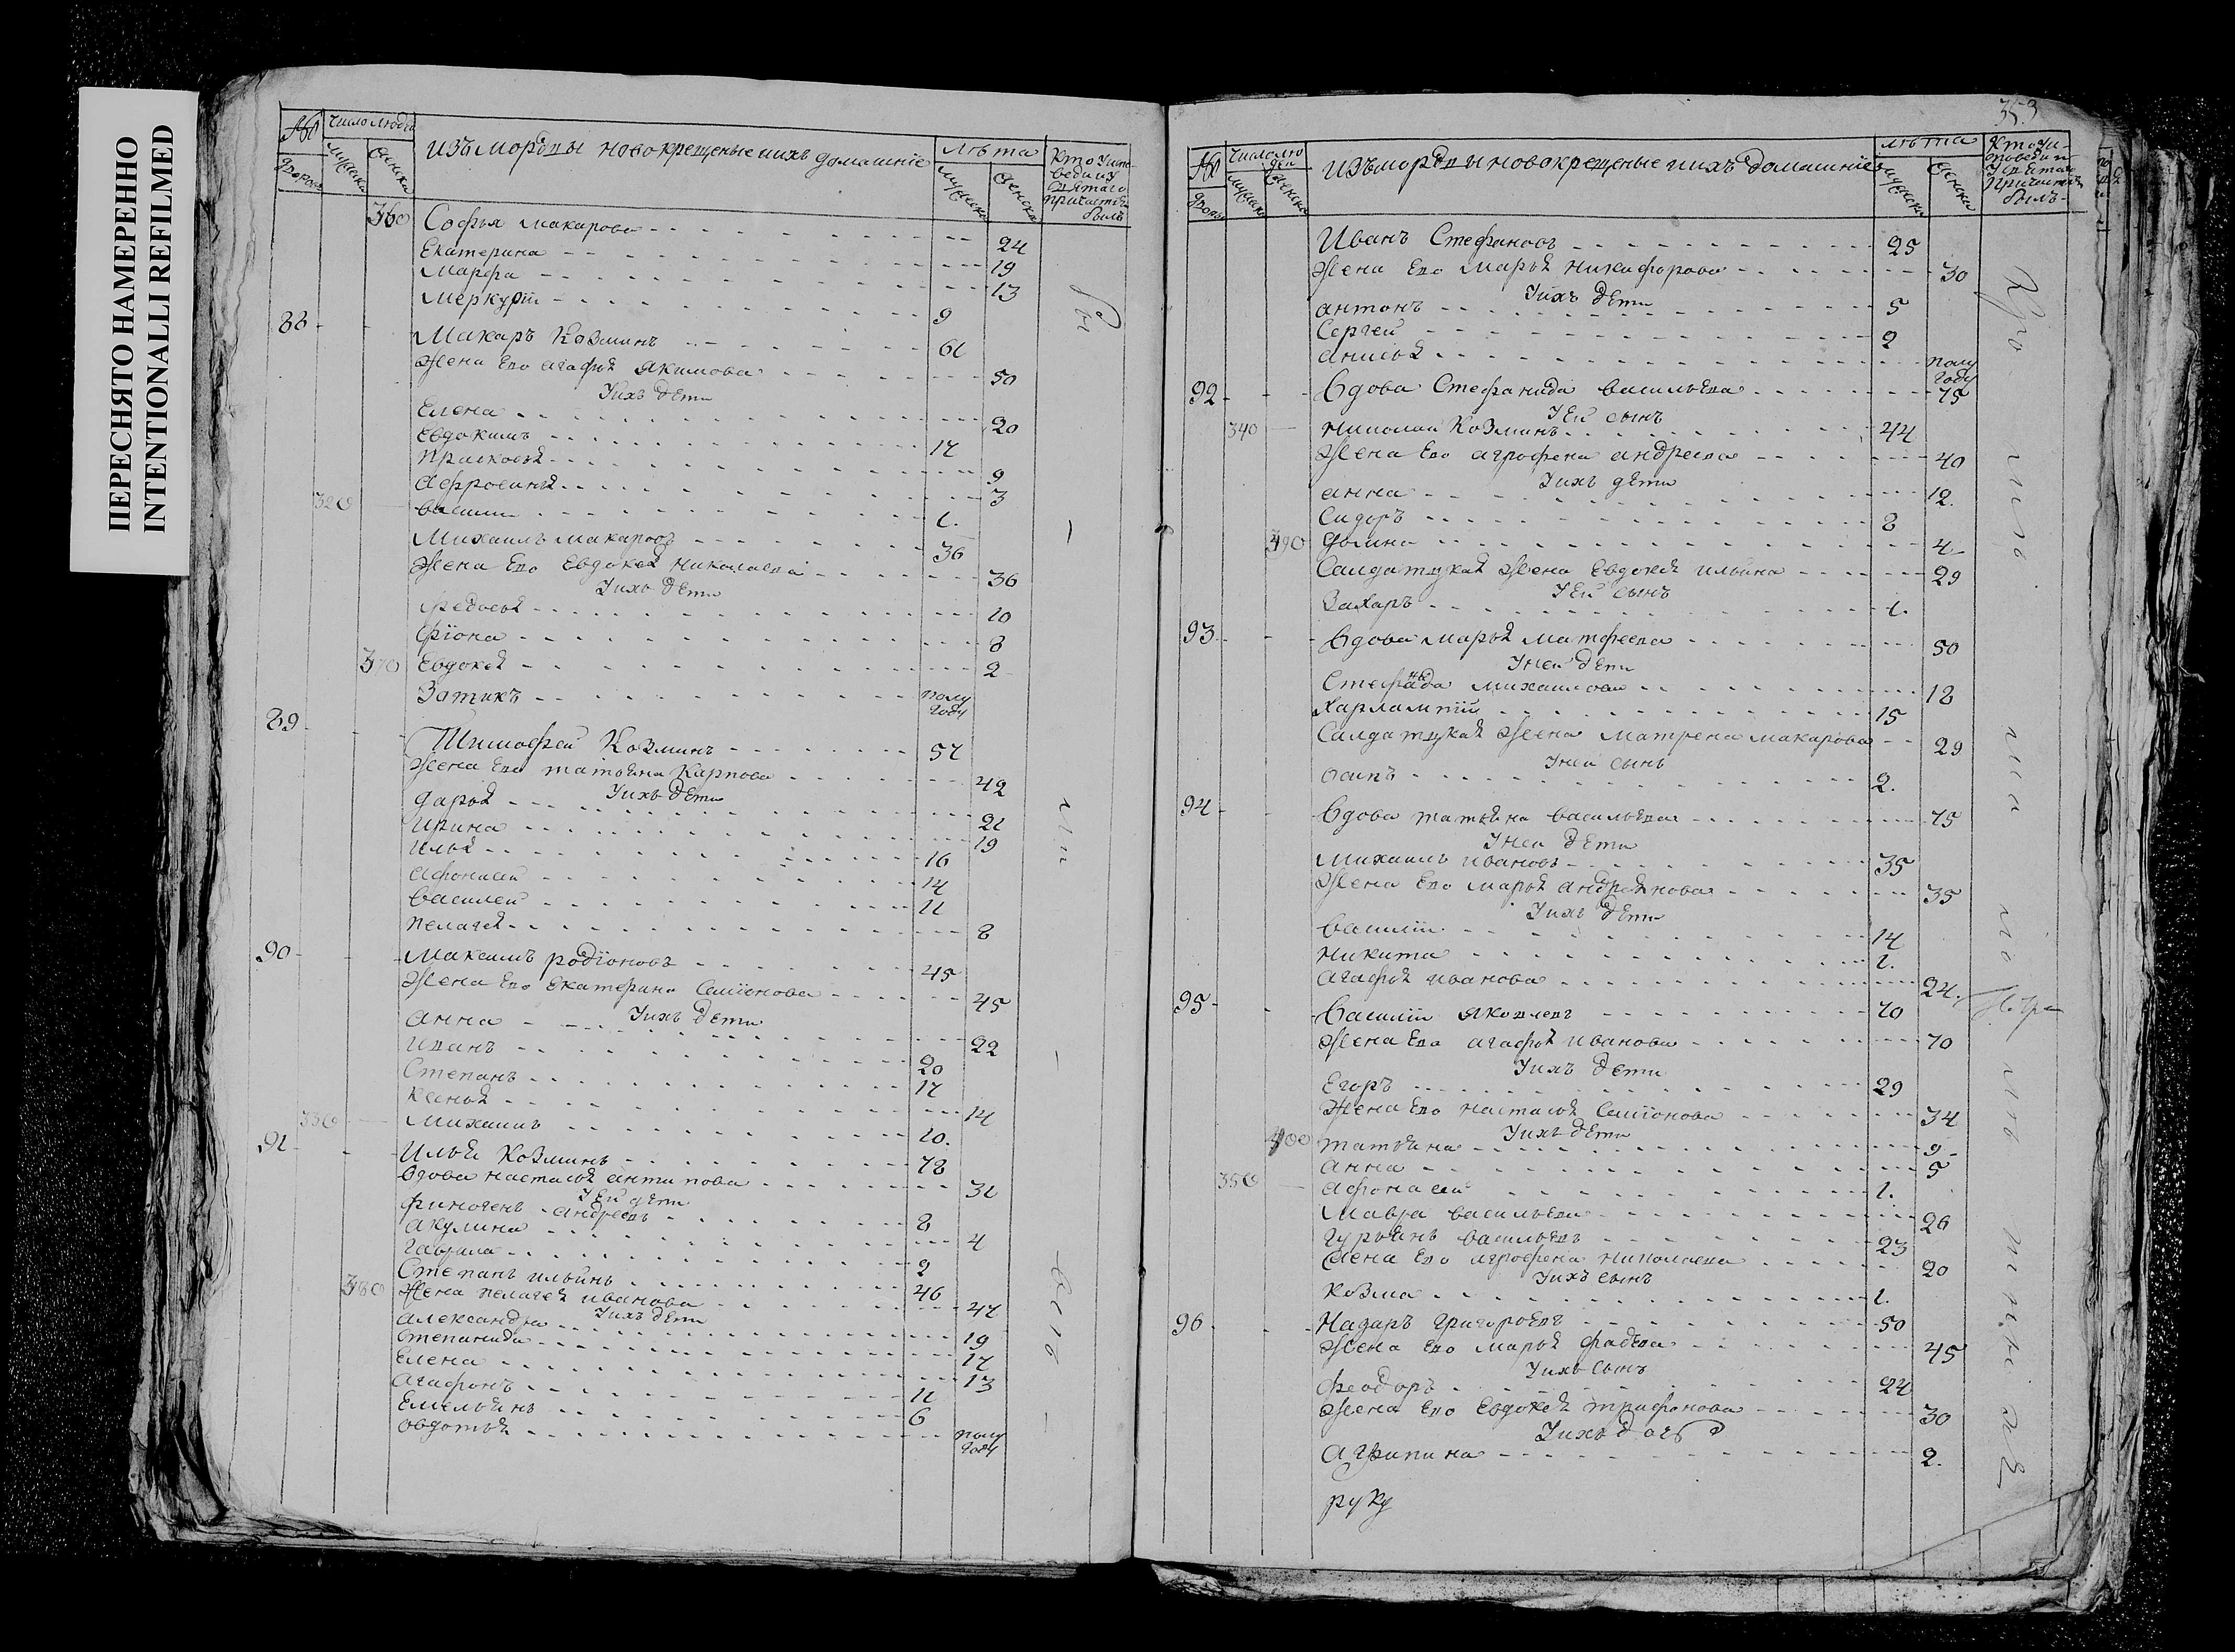 ПЕРЕСНЯТО НАМЕРЕННО
INTENTIONALLI REFILMED
№ Число людей Изъ мордвы новокрещеные и ихъ домашніе лѣта
дворовъ мужска женска мужска женска
360 Софья Макарова 24
Екатерина 19
Марфа 13
Меркурій 9
88 Макаръ Козминъ 61
Жена Его Агафья Якимова 50
У ихъ дети
Елена 20
Евдокимъ 17
Прасковья 9
Афросинья 3
320 Василий 1.
Михаилъ Макаровъ 36
Жена Его Евдокея Николаева 36
У ихъ дети
Федосья 10
Фіона 8
370 Евдокея 2
Затикъ полу году
89 Тимофей Козминъ 57
Жена Его Татьяна Карпова 42
У ихъ дети
Дарья 21
Ирина 19
Илья 16
Афонасей 14
Василей 11
Пелагея 8
90 Максимъ Родіоновъ 45
Жена Его Екатерина Семіонова 45
У ихъ дети
Анна 22
Иванъ 20
Степанъ 17
Ксенья 14
330 Михаилъ 10.
91 Илья Козминъ 78
Вдова Настасья Антипова 31
У Ей дети
Финогенъ Андреевъ 8
Акулина 4
Гаврила 2
Степанъ Ильинъ 46
380 Жена Пелагея Иванова 47
У ихъ дети
Александра 19
Степанида 17
Елена 13
Агафонъ 11
Емельянъ 6
Овдотья полу году
353
№ Число людей Изъ мордвы новокрещеные и ихъ домашніе лѣта
дворовъ мужска женска мужска женска
Иванъ Стефановъ 25
Жена Его Марья Никифорова 30
У ихъ дети
Антонъ 5
Сергей 2
Анисья полу году
92 Вдова Стефанида Васильева 75
У Ей сынъ
340 Николай Козминъ 44
Жена Его Агрофена Андреева 40
У ихъ дети
Анна 12.
Сидоръ 8
390 Домна 4
Салдатцкая Жена Евдокея Ильина 29
У Ей сынъ
Захаръ 1.
93 Вдова Марья Матфеева 50
У ней дети
Стефанида Михаилова 18
Харлампій 15
Салдатцкая Жена Матрена Макарова 29
У ней сынъ
Осипъ 2.
94 Вдова Татьяна Васильева 75
У ней дети
Михаилъ Ивановъ 35
Жена Его Марья Андреянова 35
У ихъ дети
Василій 14
Никита 1.
Агафья Иванова 24.
95 Василій Яковлевъ 70
Жена Его Агафья Иванова 70
У ихъ дети
Егоръ 29
Жена Его Настасья Семіонова 34
У ихъ дети
400 Татьяна 9
Анна 5
350 Афонасей 1.
Мавра Васильева 26
Гурьянъ Васильевъ 23
Жена Его Агрофена Николаева 20
У ихъ сынъ
Козма 1.
96 Назаръ Григорьевъ 50
Жена Его Марья Фадѣева 45
У ихъ сынъ
Феодоръ 24
Жена Его Евдокея Трифонова 30
У ихъ дочь
Агрипина 2.
руку